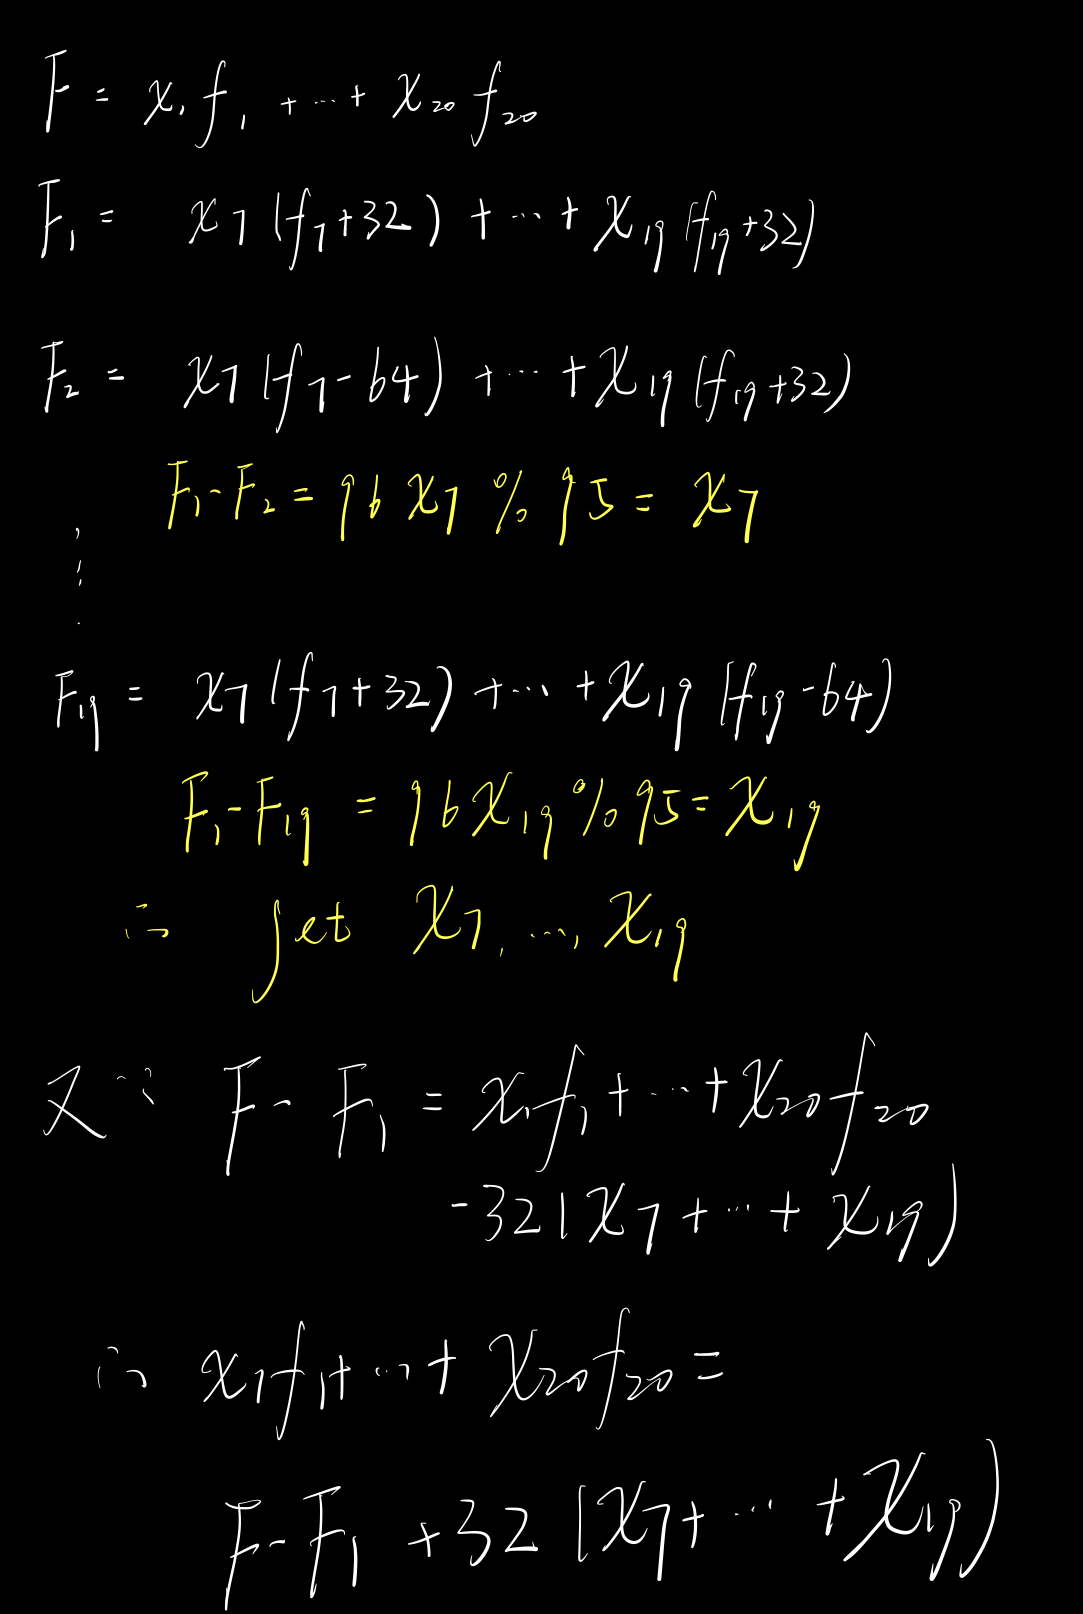 F = x₁f₁ + ⋯ + x₂₀f₂₀
F₁ = x₇(f₇+32) + ⋯ + x₁₉(f₁₉+32)
F₂ = x₇(f₇-64) + ⋯ + x₁₉(f₁₉+32)
F₁-F₂ = 96x₇ % 95 = x₇
⋮
F₁₉ = x₇(f₇+32) + ⋯ + x₁₉(f₁₉-64)
F₁-F₁₉ = 96x₁₉ % 95 = x₁₉
∴ get x₇, ⋯, x₁₉
又∵ F - F₁ = x₁f₁ + ⋯ + x₂₀f₂₀
-32(x₇ + ⋯ + x₁₉)
∴ x₁f₁ + ⋯ + x₂₀f₂₀ =
F-F₁ + 32(x₇ + ⋯ + x₁₉)